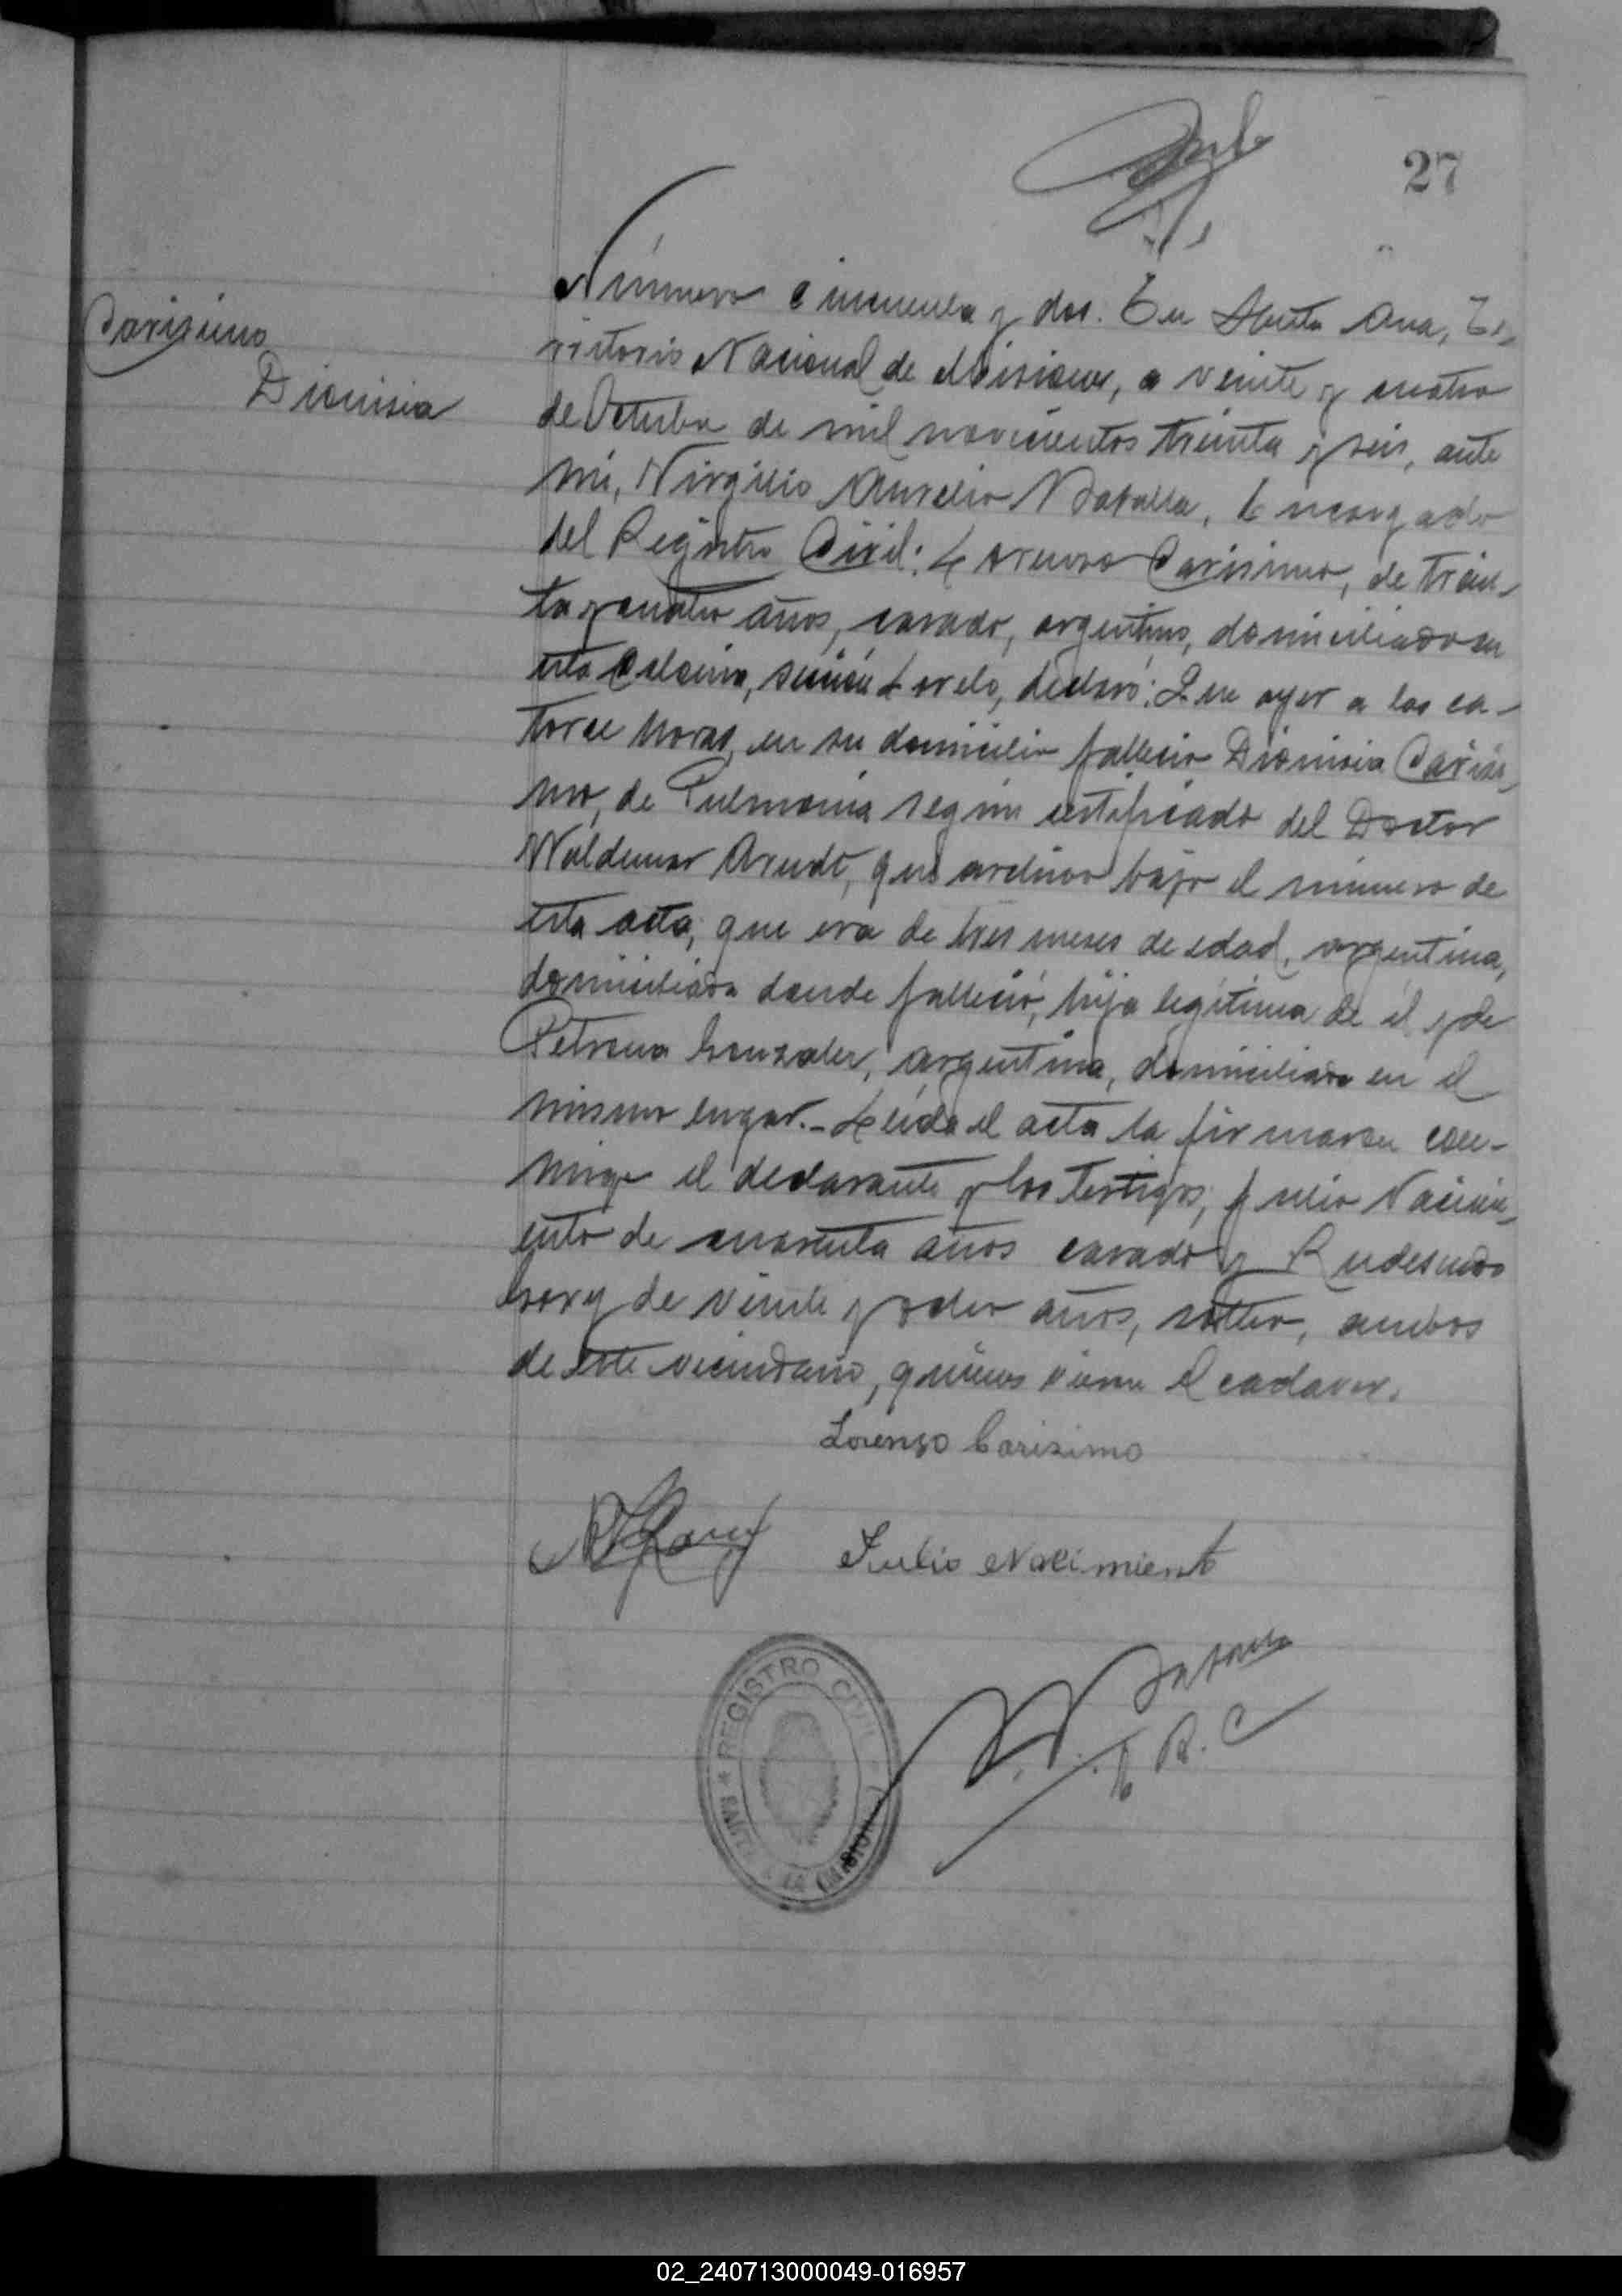 27
Carísimo
Dionisia
Número cincuenta y dos. En Santa Ana, Te-
rritorio Nacional de Misiones, a veinte y cuatro
de Octubre de mil novecientos treinta y seis, ante
mí, Virgilio Aurelio Batalla, Encargado
del Registro Civil: Lorenzo Carisimo, de trein-
ta y cuatro años, casado, argentino, domiciliado en
esta Colonia, sección Loreto, declaró: Que ayer a las ca-
torce horas, en su domicilio fallecio Dionisia Carísi-
mo, de Pulmonía según certificado del Doctor
Waldemar Arndt, que archivo bajo el número de
esta acta; que era de tres meses de edad, argentina,
domiciliada donde falleció, hija legítima de él y de
Petrona Gonzalez, argentina, domiciliada en el
mismo lugar.- Leída el acta la firmaron con-
migo el declarante y los testigos, Julio Nacimi-
ento de cuarenta años casado y Rudesindo
de veinte y ocho años, soltero, ambos
de este vecindario, quienes vieron el cadaver.
Lorenzo Carisimo
Julio Nacimiento
E. R. C
REGISTRO CIVIL
SANTA ANA (MISIONES)
02_240713000049-016957